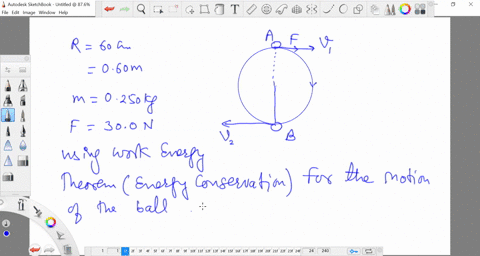 Autodesk SketchBook - Untitled @ 87.6%
File Edit Image Window My Account Help
R = 60 cm
= 0.60m
m = 0.250kg
F = 30.0 N
A
F
V₁
V₂
B
using work Energy
Theorem (Energy Conservation) for the motion
of the ball